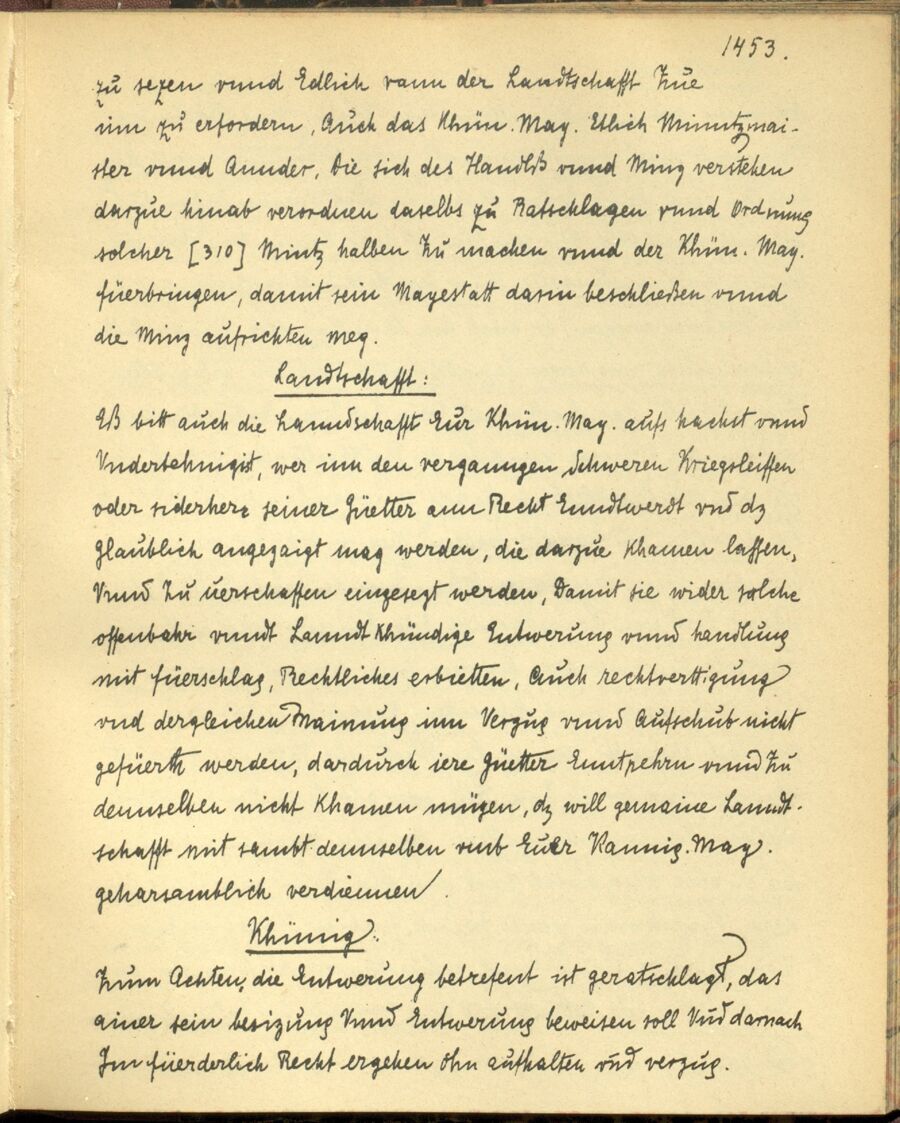 1453.
zu sezen vnnd Edlich vann der Landtschafft Zue
inn zu erfordern, Auch das Khün. May. Etlich Minntzmai-
ster vnnd Annder, Die sich des Handlß vnnd Minz verstehen
darzue hinab verordnen daselbs zu Ratschlagen vnnd Ordnung
solcher [310] Mintz halben Zu machen vnnd der Khün. May.
füerbringen, damit sein Mayestatt darin beschließen vnnd
die Minz aufrichten meg.
Landtschafft:
Eß bitt auch die Lanndschafft Eur Khün. May. aufs hachst vnnd
Vnderthenigist, wer inn den vergangnen Schweren Kriegsleiffen
oder siderherr seiner Güetter ann Recht Enndtwerdt vnd dz
glaublich angezaigt mag werden, die darzue Khamen lassen,
Vnnd Zu uerschaffen eingesezt werden, Damit sie wider solche
offenbahr vnndt Lanndt Khündige Entwerung vnnd handlung
mit füerschlag, Rechtliches erbietten, Auch rechtverttigung
vnd dergleichen Mainung inn Verzug vnnd Aufschub nicht
gefüerth werden, dardurch iere Güetter Enntpehrn vnnd Zu
dennselben nicht Khamen mügen, dz will gemaine Lanndt-
schafft mit sambt dennselben vmb Euer Kannig. May.
geharsamblich verdiennen.
Khünig:
Zum Achten, die Entwerung betrefent ist geratschlagt, das
ainer sein besizung Vnnd Entwerung beweisen soll Vnd darnach
Im füerderlich Recht ergehen ohn aufhalten vnd verzug.